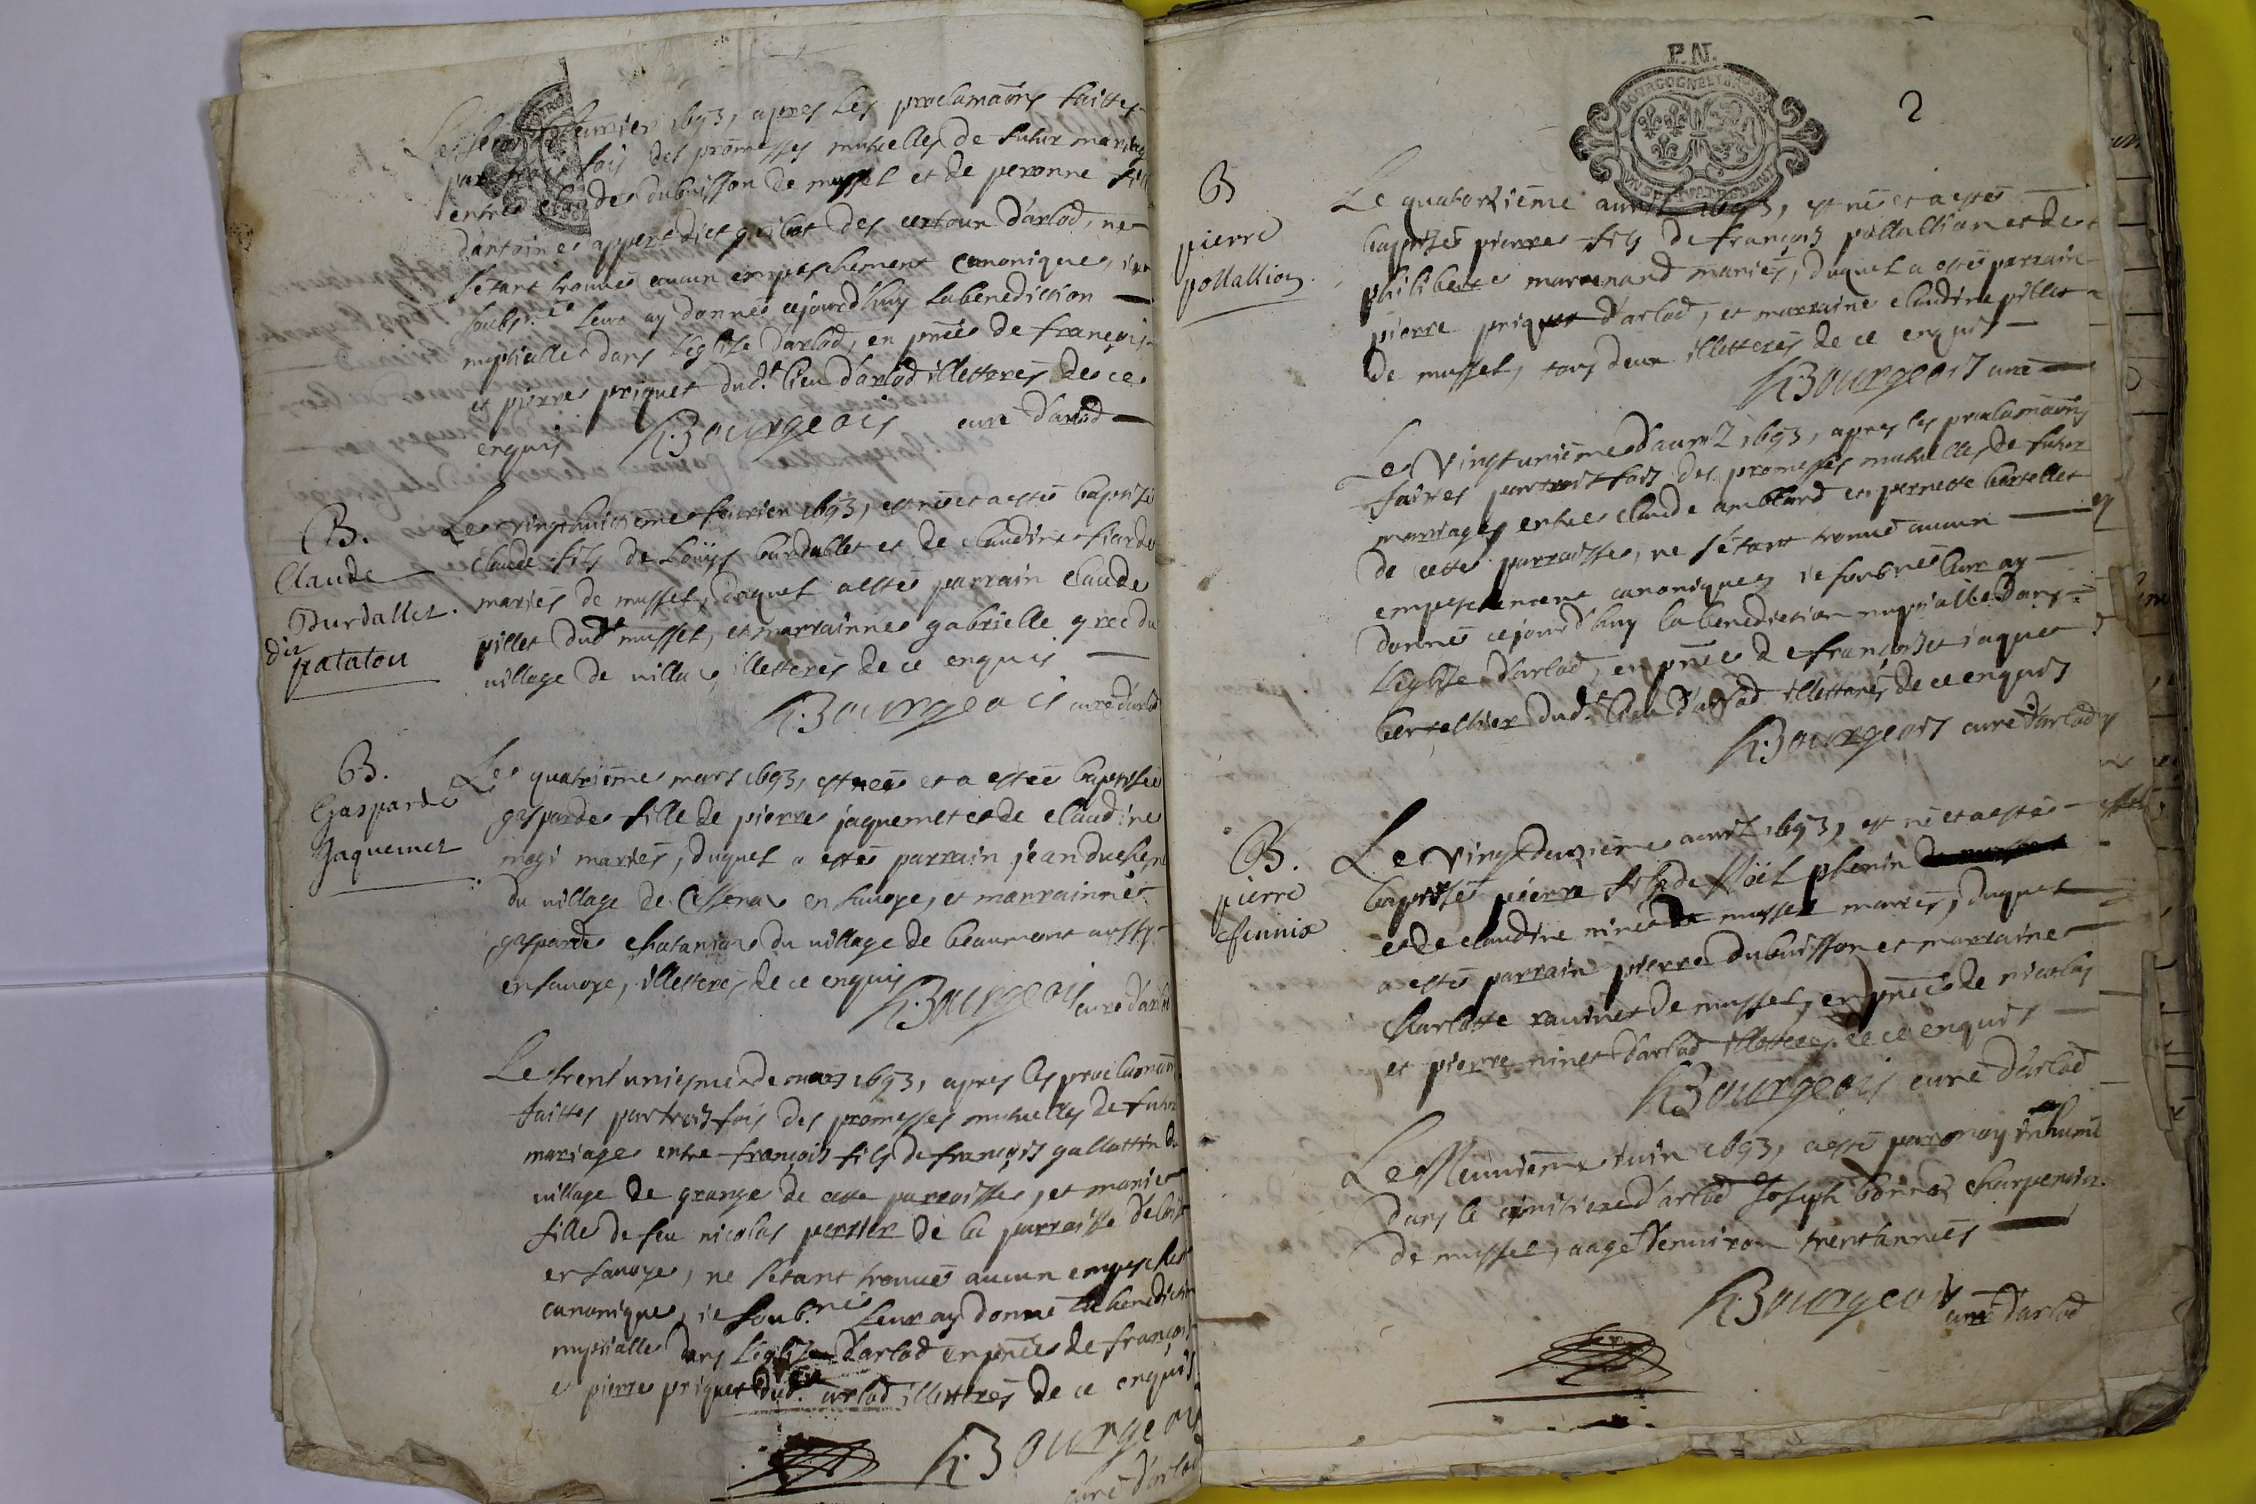 feurier 1693, apres les proclamaõns faittes
par trois fois des promesses mutuelles de futur mariage
entre claude dubuisson de mussel et de peronne fille
d'antoine appert dict des d'arlod, ne
s'étant trouué aucun empeschement canonique, ie
soubs.né leur ay donné cejourd'huy la benediction
nuptialle dans l'eglise d'arlod, en pñce de françois
et pierre priquet dud.t lieu d'arlod illetterés de ce
enquis Bourgeois curé d'arlod
B.
Claude
Burdallet
dit
patatou
Le vingthuictieme feurier 1693, est né et a esté baptisé
claude fils de Loüys burdallet et de claudine
mariés de mussel, duquel a esté parrain claude
pillet dud.t mussel, et marrainne gabrielle grec du
uillage de uillar, illetterés de ce enquis
Bourgeois curé d'arlod
B.
Gasparde
Jaquemet
Le quatriéme mars 1693, est née et a estée baptisée
gasparde fille de pierre jaquemet et de claudine
mariés, duquel a esté parrain jean duchene
du uillage de en sauoye, et marrainne
gasparde du uillage de beaumont aussy
en sauoye, illetterés de ce enquis
Bourgeois curé d'arlod
Le trent'uniesme de mars 1693, apres les proclamaõns
faittes par trois fois des promesses mutuelles de futur
mariage entre françois fils de françois gallattin du
uillage de grange de cette parroisse, et marie
fille de feu nicolas perrier de la parroisse
en sauoye, ne s'étant trouué aucun empeschet
canonique, ie soub.né leur ay donné la benediction
nuptialle dans l'eglise d'arlod en pñce de françois
et pierre priquet dud.t arlod illetterés de ce enquis
Bourgeois
curé d'arlod
P.N.
BOURGOGNE ET BRESSE
2
B
pierre
pollallion
Le quatorziéme auril 1693, est né et a esté
baptisé pierre fils de françois pollallion et de
philiberte marinand mariés, duquel a esté parrain
pierre priquet d'arlod, et marraine claudine pillet
de mussel, tous deux illetterés de ce enquis
Bourgeois curé
Le vingtuniéme d'auril 1693, apres les proclamaõns
faites par trois fois des promesses mutuelles de futur
mariage entre claude amblard et pernette bertellet
de cette parroisse, ne s'étant trouué aucun
empeschement canonique, ie soubné leur ay
donné cejourd'huy la benediction nuptialle dans
l'eglise d'arlod, en pñce de françois et iaques
bertellier dud.t lieu d'arlod illetterés de ce enquis
Bourgeois curé d'arlod
B.
pierre
fennix
Le vingtdeuziéme auril 1693, est né et a esté
baptisé pierre fils de Noël phenin
et de claudine ninet de mussel mariés, duquel
a esté parrain pierre dubuisson et marraine
charlotte rauinet de mussel, en pñce de nicolas
et pierre ninet d'arlod illetterés de ce enquis
Bourgeois curé d'arlod
Le Neuuiéme iuin 1693, a esté par moy inhumé
dans le cimitiere d'arlod Joseph charpentier
de mussel, aagé d'enuiron trent'années
Bourgeois
curé d'arlod